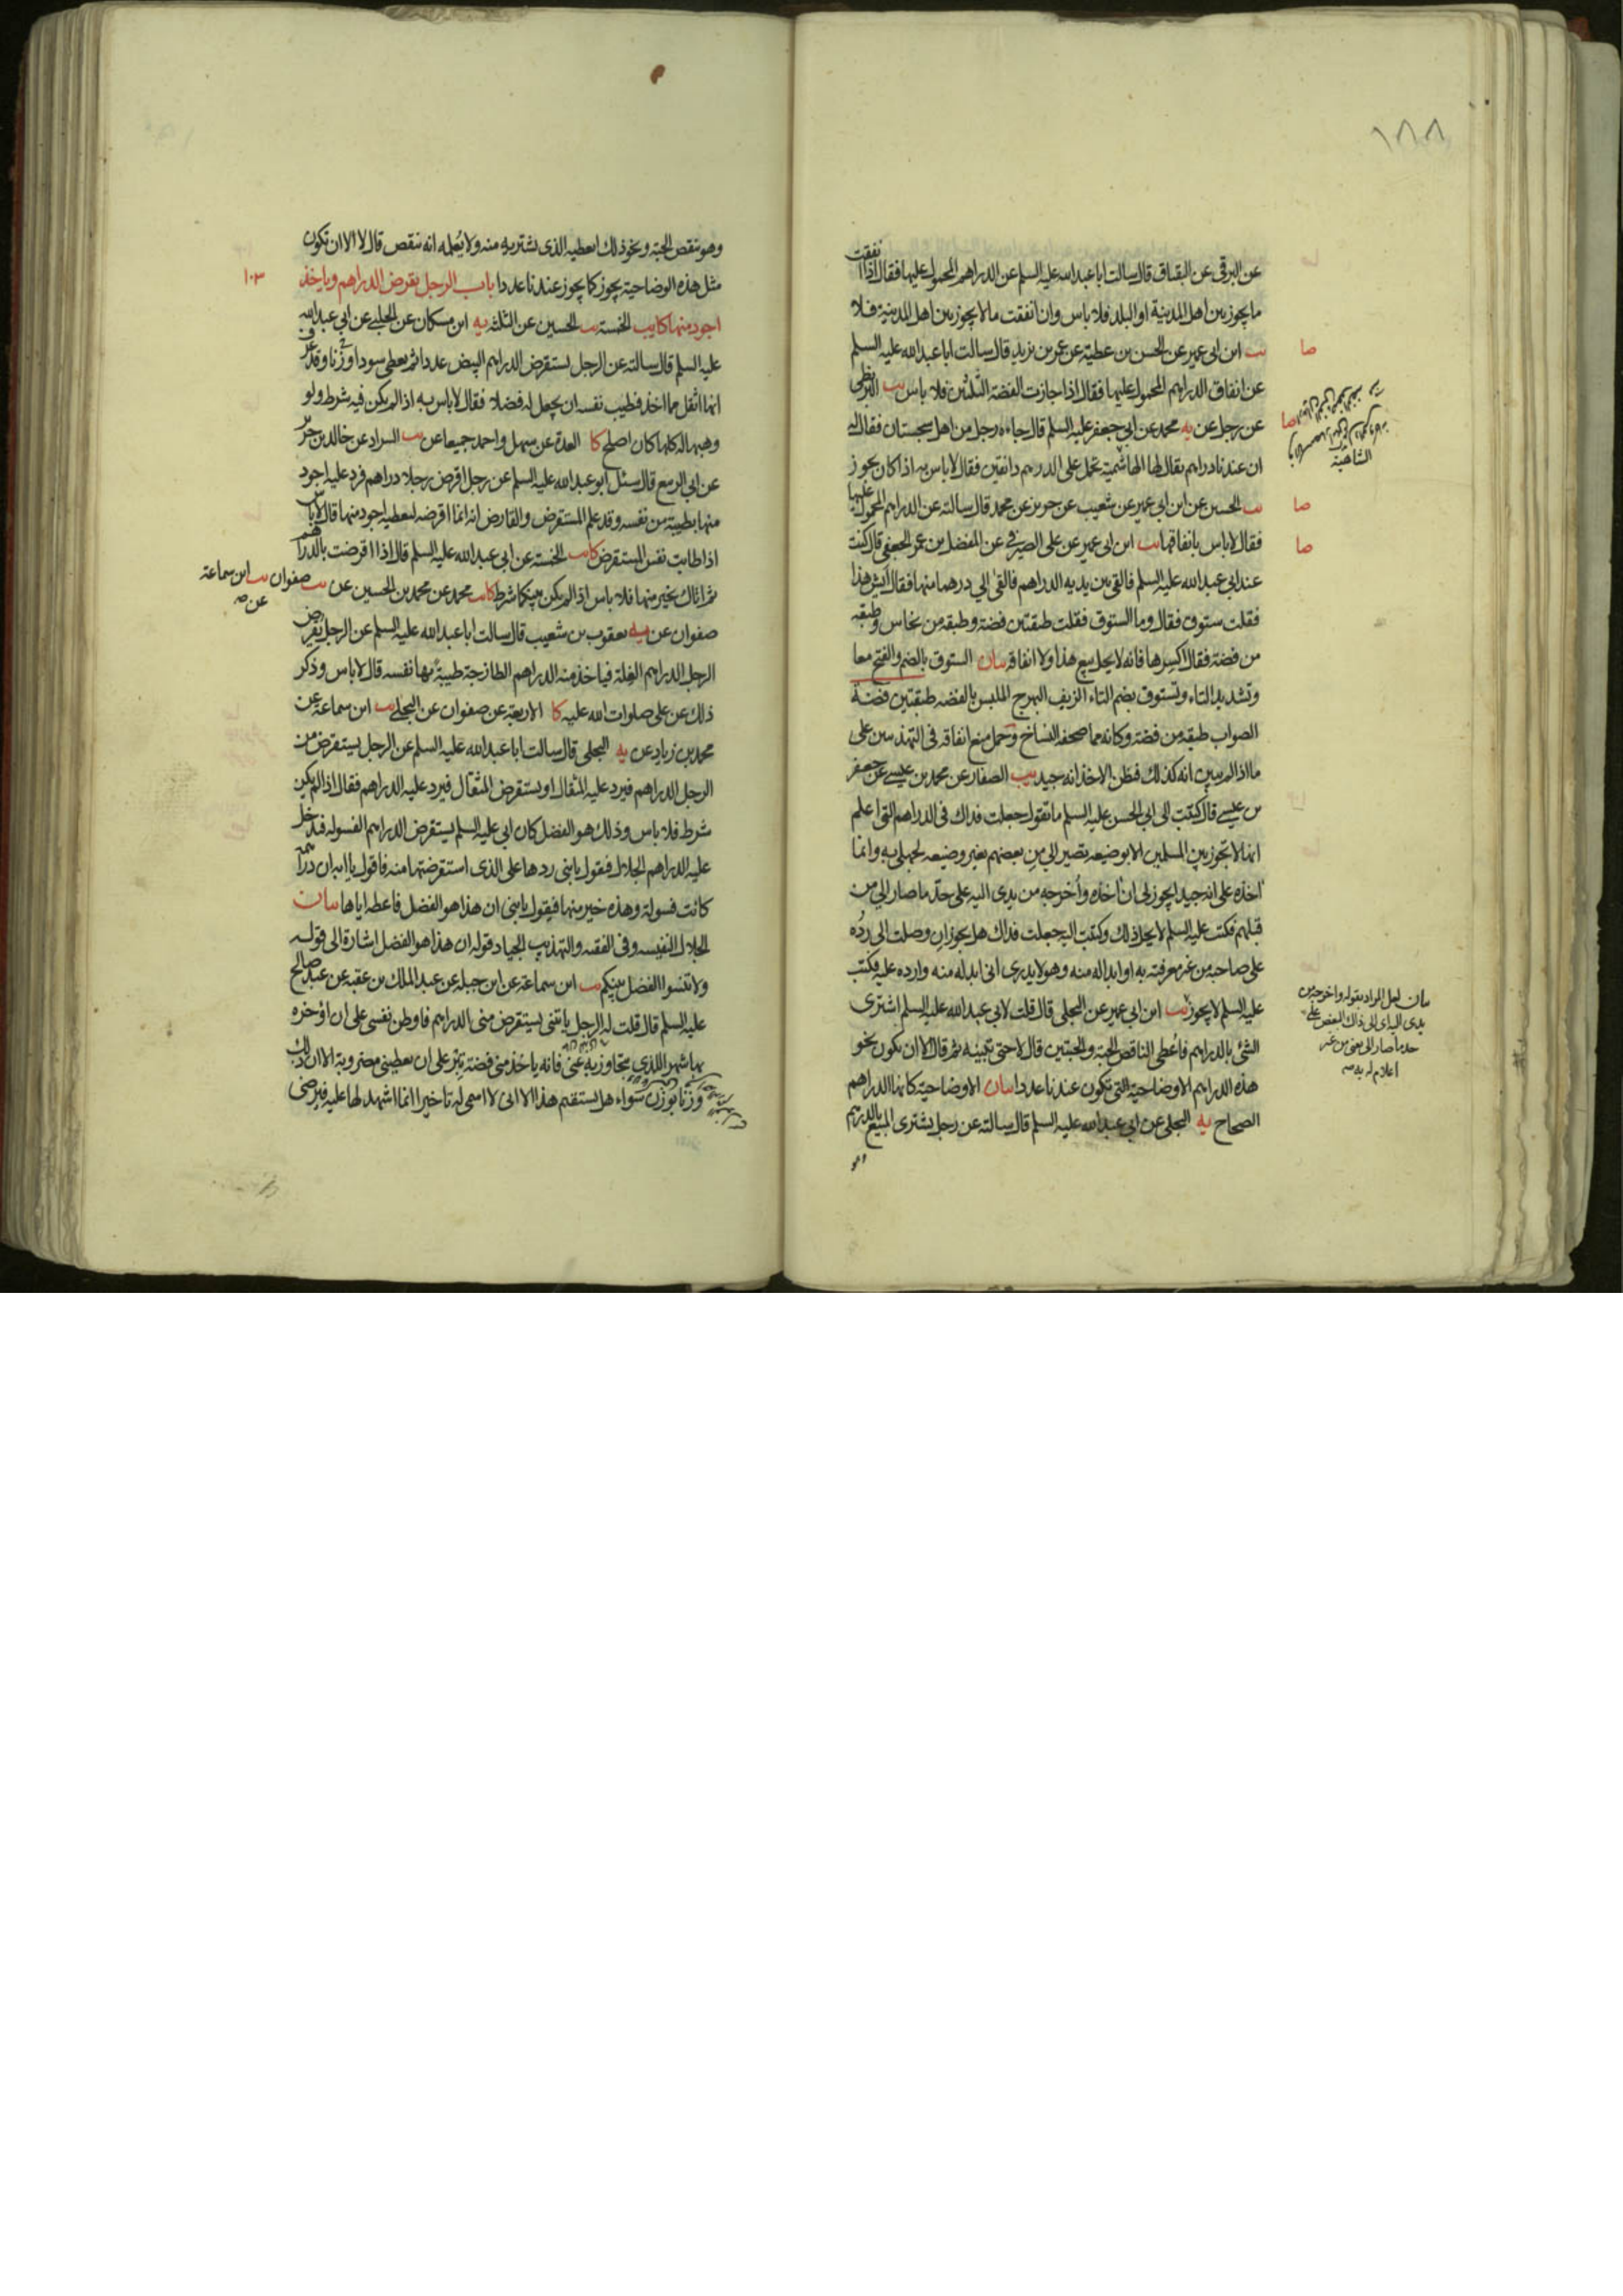 ١٨٨
عن البرقي عن البقباق قال سالت ابا عبد الله عليه السلم عن الدراهم المحمول عليها فقال اذا انفقت
ما يجوز بين اهل المدينة او البلد فلا باس وان انفقت ما لا يجوز بين اهل المدينة فلا
يب ابن ابي عمير عن الحسن بن عطية عن عمر بن يزيد قال سالت ابا عبد الله عليه السلم
صا
عن انفاق الدراهم المحمول عليها فقال اذا جازت الفضة الثلثين فلا باس يب البزنطي
عن رجل عن يه محمد عن ابي جعفر عليه السلم قال جاءه رجل من اهل سجستان فقال له
صا
الشاهية
ان عندنا دراهم يقال لها الهاشمية تحمل على الدرهم دانقين فقال لا باس به اذا كان يجوز
يب الحسين عن ابن ابي عمير عن شعيب عن حريز عن محمد قال سالته عن الدراهم المحمول عليها
صا
فقال لا باس بانفاقها يب ابن ابي عمير عن على الصيرفي عن المفضل بن عمر الجعفي قال كنت
صا
عند ابي عبد الله عليه السلم فالقى بين يديه الدراهم فالقى الي درهما منها فقال ايش هذا
فقلت ستوق فقال وما الستوق فقلت طبقتين فضة وطبقة من نحاس وطبقه
من فضة فقال اكسرها فانه لا يحل بيع هذا ولا انفاقه بيان الستوق بالضم والفتح معا
وتشديد التاء وتستوق بضم التاء الزيف البهرج الملبس بالفضه طبقتين فضة
الصواب طبقه من فضة وكانه مما صحفه النساخ وحمل منع انفاقه في التهذيبين على
ما اذا لم يبين انه كذلك فيظن الاخذ انه جيد يب الصفار عن محمد بن عيسى عن جعفر
بن عيسى قال كتبت الى ابي الحسن عليه السلم ما تقول جعلت فداك في الدراهم التي اعلم
انها لا تجوز بين المسلمين الا بوضيعه تصير الي من بعضهم بغير وضيعه لجهلي به وانما
اخذه على انه جيد ايجوز لي ان اخذه واخرجه من يدى اليه على حد ما صار الي من
قبلهم فكتب عليه السلم لا يحل ذلك وكتبت اليه جعلت فداك هل يجوز ان وصلت الى رده
على صاحبه من غير معرفته به او ابداله منه وهو لا يدرى انى ابدله منه وارده عليه فكتب
عليه السلم لا يجوز يب ابن ابي عمير عن البجلي قال قلت لابي عبد الله عليه السلم اشترى
الشئ بالدراهم فاعطى الناقص الحبة والحبتين قال لا حتى تبينه ثم قال الا ان يكون نحو
هذه الدراهم الاوضاحية التي تكون عندنا عددا بيان الاوضاحية كانها الدراهم
الصحاح يه البجلي عن ابي عبد الله عليه السلم قال سالته عن رجل يشترى المبيع بالدرهم
وهو
بيان لعل المراد بقوله واخرجه من
يدى اليه اى الى ذلك البعض على
حد ما صار الي يعنى من غير
اعلام له به منه
وهو ينقص الحبة ونحو ذلك ايعطيه الذى يشتريه منه ولا يعلمه انه ينقص قال لا الا ان تكون
مثل هذه الوضاحية يجوز كما يجوز عندنا عددا باب الرجل يقرض الدراهم وياخذ
١٠٣
اجود منها كا يب الخمسة يب الحسين عن الثلثه يه ابن مسكان عن الحلبي عن ابي عبد الله
عليه السلم قال سالته عن الرجل يستقرض الدراهم البيض عددا ثم يعطى سودا وزنا وقد عرف
انها اثقل مما اخذ وتطيب نفسه ان يجعل له فضلا فقال لا باس به اذا لم يكن فيه شرط ولو
وهبها له كلها كان اصلح كا العدة عن سهل واحمد جميعا عن يب السراد عن خالد بن جرير
عن ابي الربيع قال سئل ابو عبد الله عليه السلم عن رجل اقرض رجلا دراهم فرد عليه اجود
منها بطيبة من نفسه وقد علم المستقرض والقارض انه انما اقرضه ليعطيه اجود منها قال لا باس
اذا طابت نفس المستقرض كا يب الخمسة عن ابي عبد الله عليه السلم قال اذا اقرضت الدراهم
ثم اتاك بخير منها فلا باس اذا لم يكن بينكما شرط كا يب محمد عن محمد بن الحسين عن يب صفوان يب ابن سماعة
عن صه
صفوان عن يه يعقوب بن شعيب قال سالت ابا عبد الله عليه السلم عن الرجل يقرض
الرجل الدراهم الغلة فياخذ منه الدراهم الطازجة طيبة بها نفسه قال لا باس وذكر
ذلك عن على صلوات الله عليه كا الاربعة عن صفوان عن البجلي يب ابن سماعة عن
محمد بن زياد عن يه البجلي قال سالت ابا عبد الله عليه السلم عن الرجل يستقرض من
الرجل الدراهم فيرد عليه المثقال او يستقرض المثقال فيرد عليه الدراهم فقال اذا لم يكن
شرط فلا باس وذلك هو الفضل كان ابي عليه السلم يستقرض الدراهم الفسولة فيدخل
عليه الدراهم الجلال فيقول يا بنى ردها على الذى استقرضتها منه فاقول يا ابه ان دراهمه
كانت فسولة وهذه خير منها فيقول يا بنى ان هذا هو الفضل فاعطه اياها بيان
الجلال النفيسه وفي الفقيه والتهذيب الجياد قوله ان هذا هو الفضل اشارة الى قوله
ولا تنسوا الفضل بينكم يب ابن سماعة عن ابن جبلة عن عبد الملك بن عتبه عن عبد صالح
عليه السلم قال قلت له الرجل ياتنى يستقرض منى الدراهم فاوطن نفسى على ان اؤخره
بها شهرا للذى يتجاوز به عنى فانه ياخذ منى فضة تبر على ان يعطينى مضروبة الا ان ذلك
وزنا بوزن سواء هل يستقيم هذا الا انى لا اسمى له تاخيرا انما اشهد لها عليه فيرضى